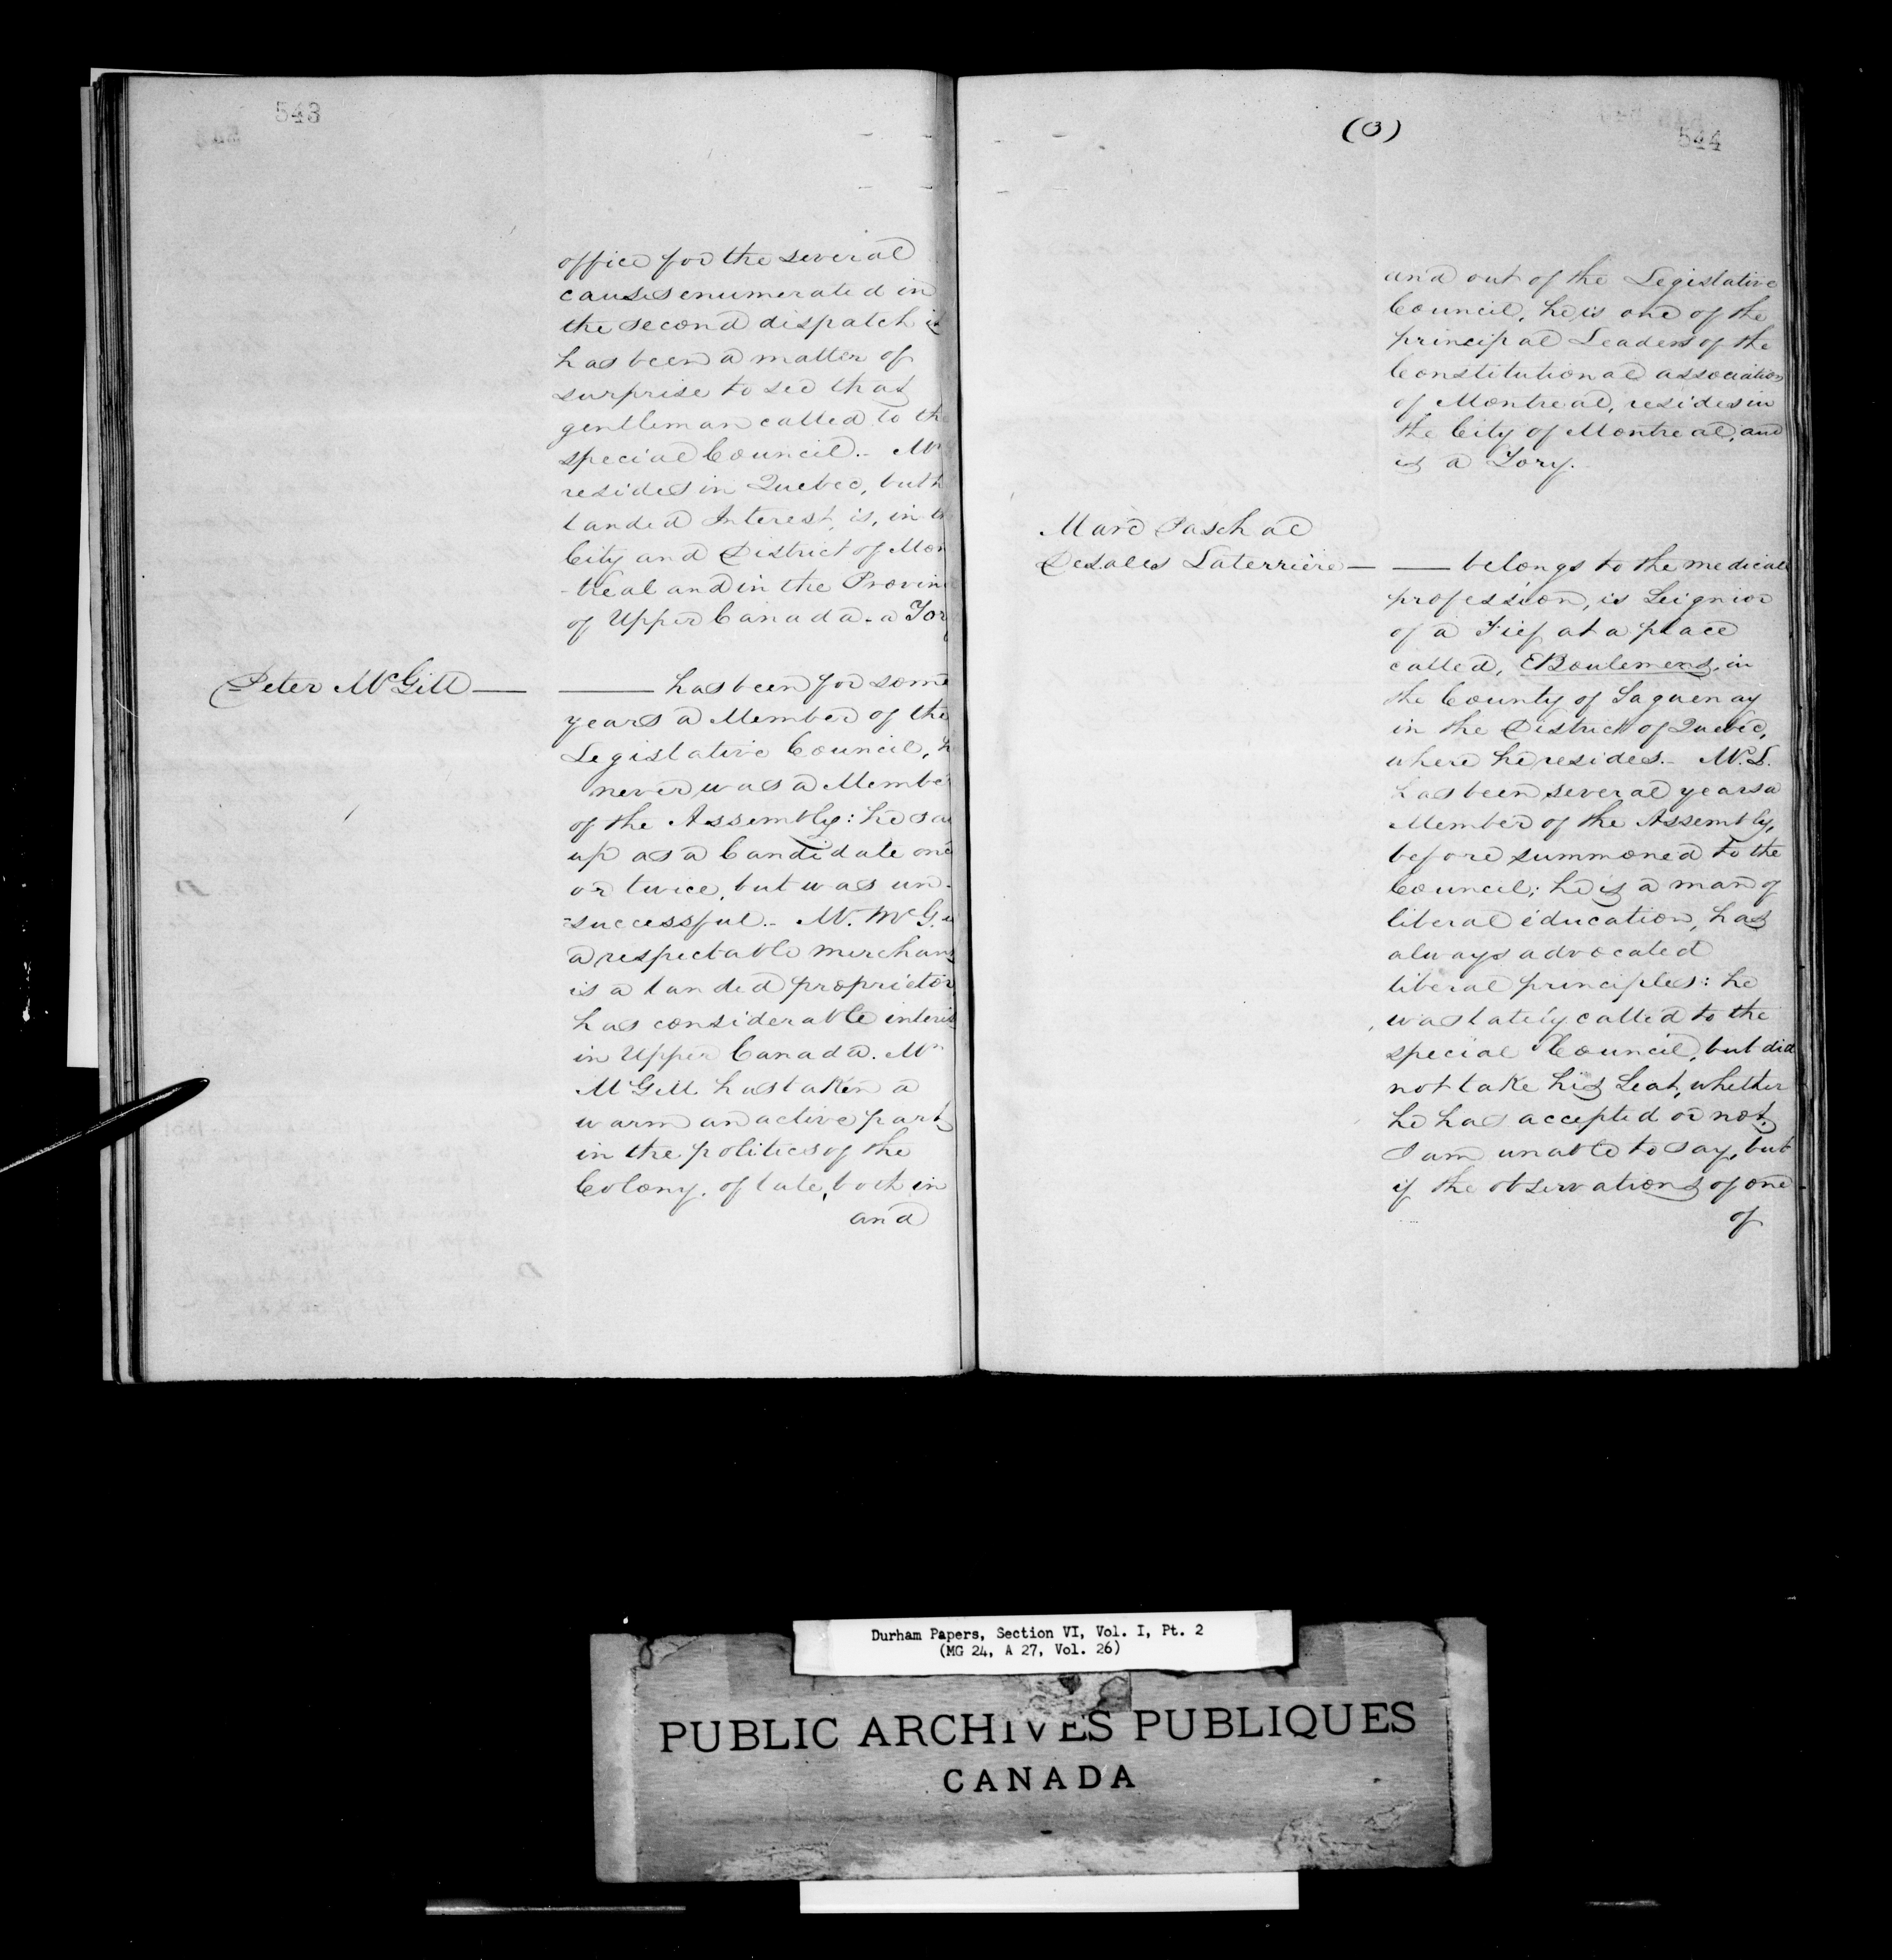 543
office for the several
causes enumerated in
the second dispatch it
has been a matter of
surprise to see that
gentleman called to the
special Council.- Mr
resides in Quebec, but h
landed Interest, is, in th
City and District of Mon
-treal and in the Provin
of Upper Canada - a Tory
Peter McGill — — has been for some
years a Member of the
Legislative Council, h
never was a Member
of the Assembly: he sa
up as a Candidate once
or twice, but was un-
=successful.- Mr. McG. is
a respectable merchant
is a landed proprietor,
has considerable interes
in Upper Canada. Mr
McGill has taken a
warm an active part
in the politics of the
Colony. of late, both in
and
(3)
544
and out of the Legislative
Council, he is one of the
principal Leaders of the
Constitutional association
of Montreal, resides in
the City of Montreal, and
is a Tory.
Marc Paschal
DeSales Laterriere — — belongs to the medical
profession, is Seignior
of a Fief at a place
called, EBoulemens, in
the County of Saguenay
in the District of Quebec,
where he resides.- Mr. L.
has been several years a
Member of the Assembly,
before summoned to the
Council; he is a man of
liberal éducation, has
always advocated
liberal principles: he
was lately called to the
special Council, but did
not take his Seat, whether
he has accepted or not,
I am unable to say, but
if the observations of one
of
Durham Papers, Section VI, Vol. I, Pt. 2
(MG 24, A 27, Vol. 26)
PUBLIC ARCHIVES PUBLIQUES
CANADA